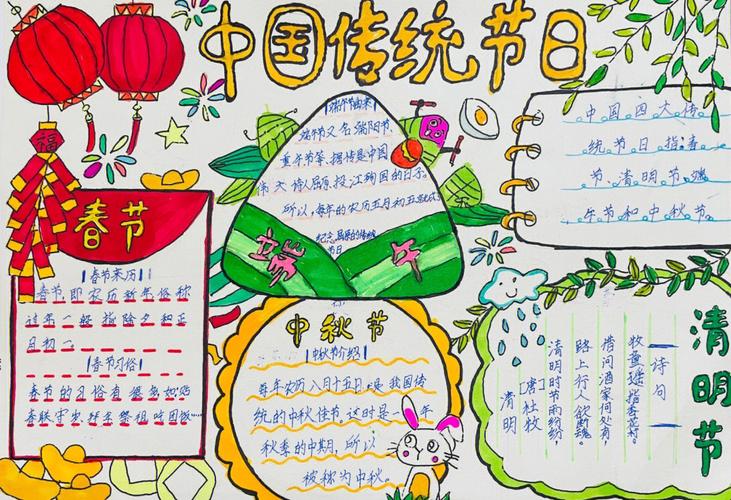 中国传统节日
福
春节
春节来历
春节,即农历新年,俗称
过年,一般指除夕和正
月初一。
春节习俗
春节的习俗有很多,如:贴
春联、守岁、拜年、祭祖、吃团饭……
端午节由来
端午节又名端阳节、
重午节等,据传是中国
伟大诗人屈原投江殉国的日子。
所以,每年的农历五月初五就成
纪念屈原的传统
节日
端午
中秋节
中秋节介绍
每年农历八月十五日,是我国传
统的中秋佳节。这时是一年
秋季的中期,所以
被称为中秋。
中国四大传
统节日指:春
节、清明节、端
午节和中秋节。
清明节
诗句
清明
【唐】杜牧
清明时节雨纷纷
路上行人欲断魂。
借问酒家何处有,
牧童遥指杏花村。